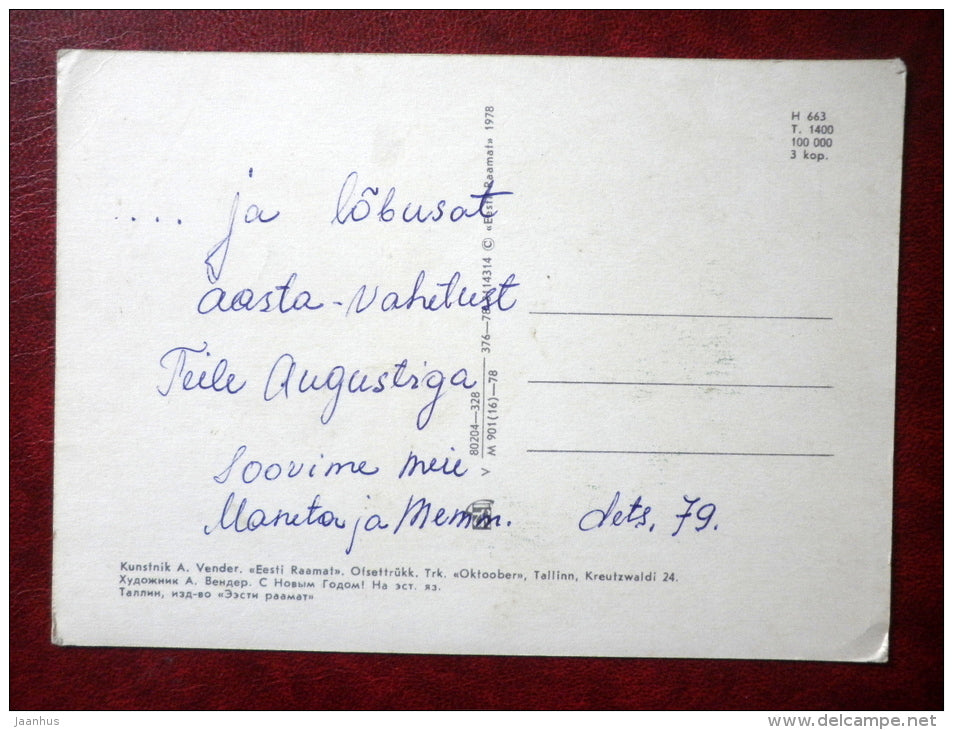 H 663
T. 1400
100 000
3 kop.
... ja lõbusat
aasta-vahetust
Teile Augustiga
Soovime meie
Maneta ja Memm.
dets. 79.
80204—328
M 901(16)—78
376—78 114314 © «Eesti Raamat» 1978
V
Kunstnik A. Vender. «Eesti Raamat». Ofsettrükk. Trk. «Oktoober», Tallinn, Kreutzwaldi 24.
Художник А. Вендер. С Новым Годом! На эст. яз.
Таллин, изд-во «Ээсти раамат»
jaanhus
www.delcampe.net